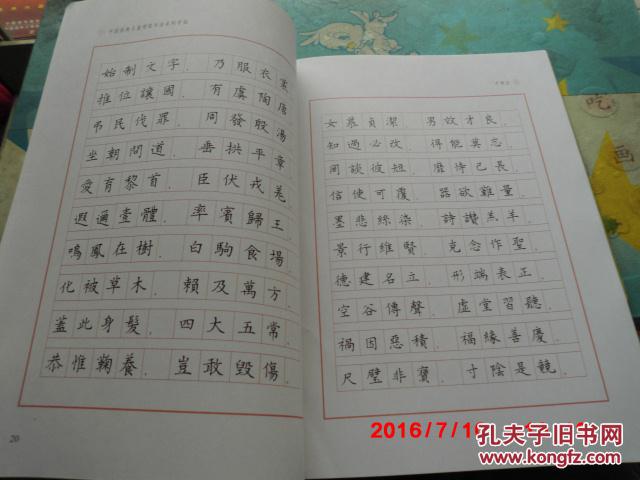 始制文字，乃服衣裳
推位讓國，有虞陶唐
弔民伐罪，周發殷湯
坐朝問道，垂拱平章
愛育黎首，臣伏戎羌
遐邇壹體，率賓歸王
鳴鳳在樹，白駒食場
化被草木，賴及萬方
蓋此身髮，四大五常
恭惟鞠養，豈敢毀傷
20
女慕貞潔，男效才良
知過必改，得能莫忘
罔談彼短，靡恃己長
信使可覆，器欲難量
墨悲絲染，詩讚羔羊
景行維賢，克念作聖
德建名立，形端表正
空谷傳聲，虛堂習聽
禍因惡積，福緣善慶
尺璧非寶，寸陰是競
吃
画
2016/7/1
孔夫子旧书网
www.kongfz.com